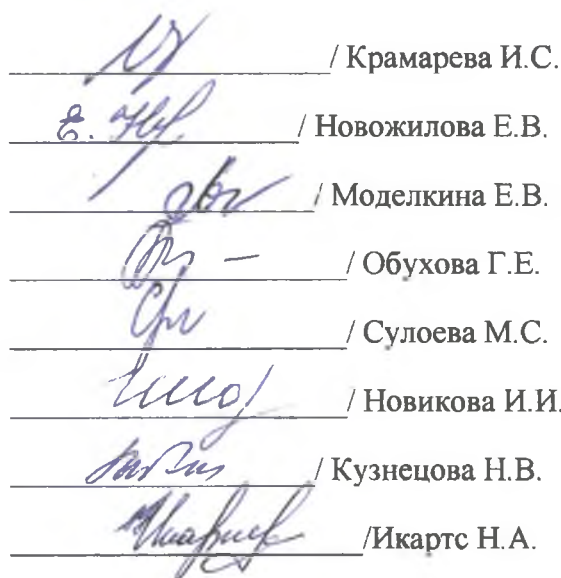 / Крамарева И.С.
/ Новожилова Е.В.
/ Моделкина Е.В.
/ Обухова Г.Е.
/ Сулоева М.С.
/ Новикова И.И.
/ Кузнецова Н.В.
/Икартс Н.А.